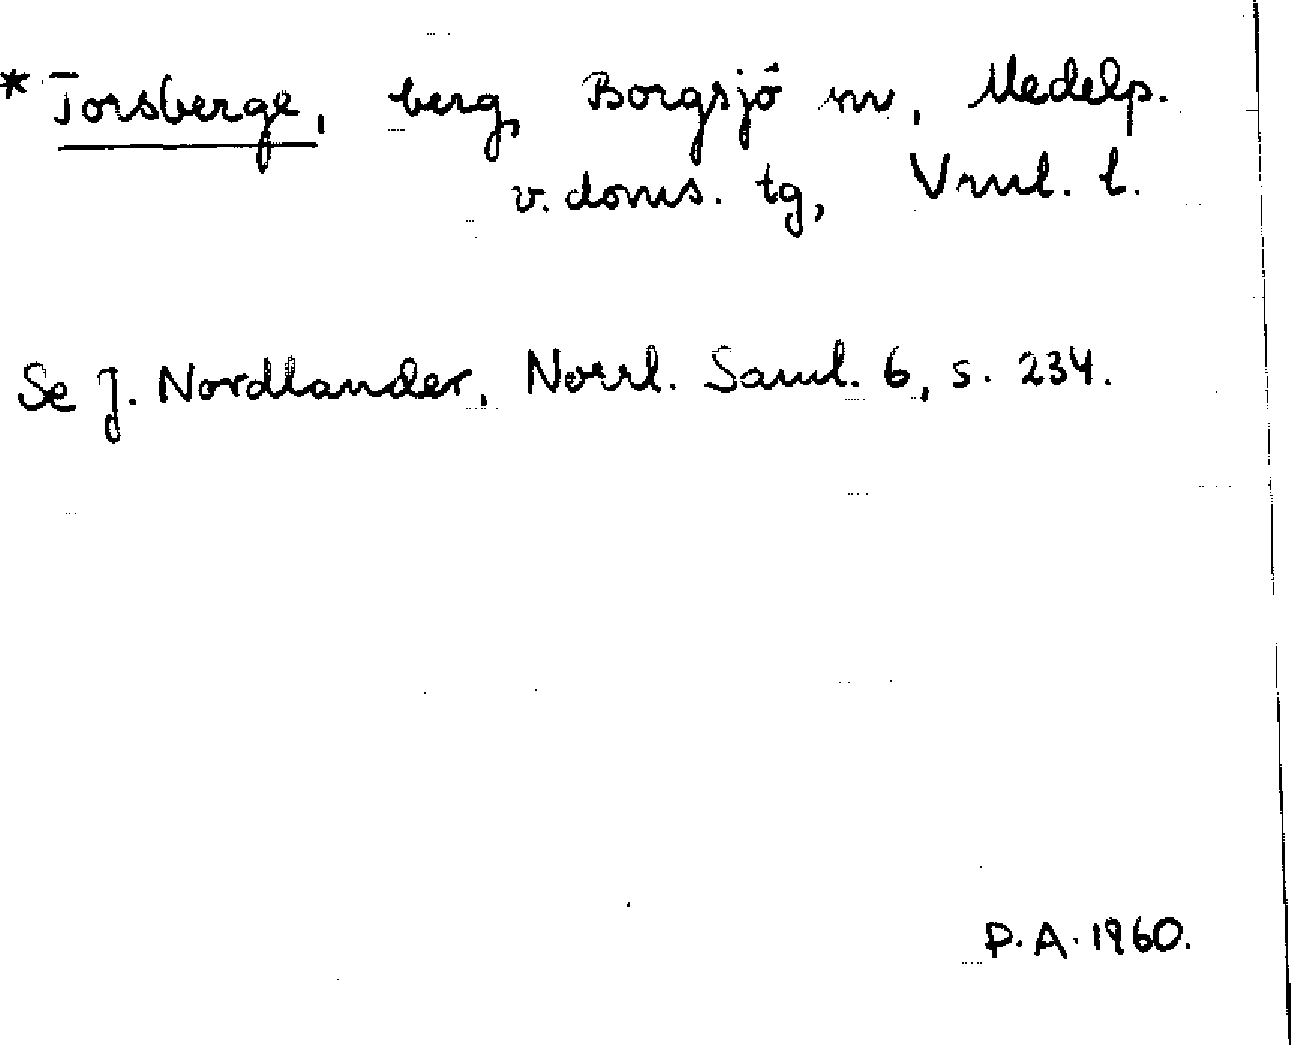 * Torsberge, berg, Borgsjö sn, Medelp.
v. doms. tg, Vrnl. l.
Se J. Nordlander, Norrl. Saml. 6, s. 234.
P. A. 1960.